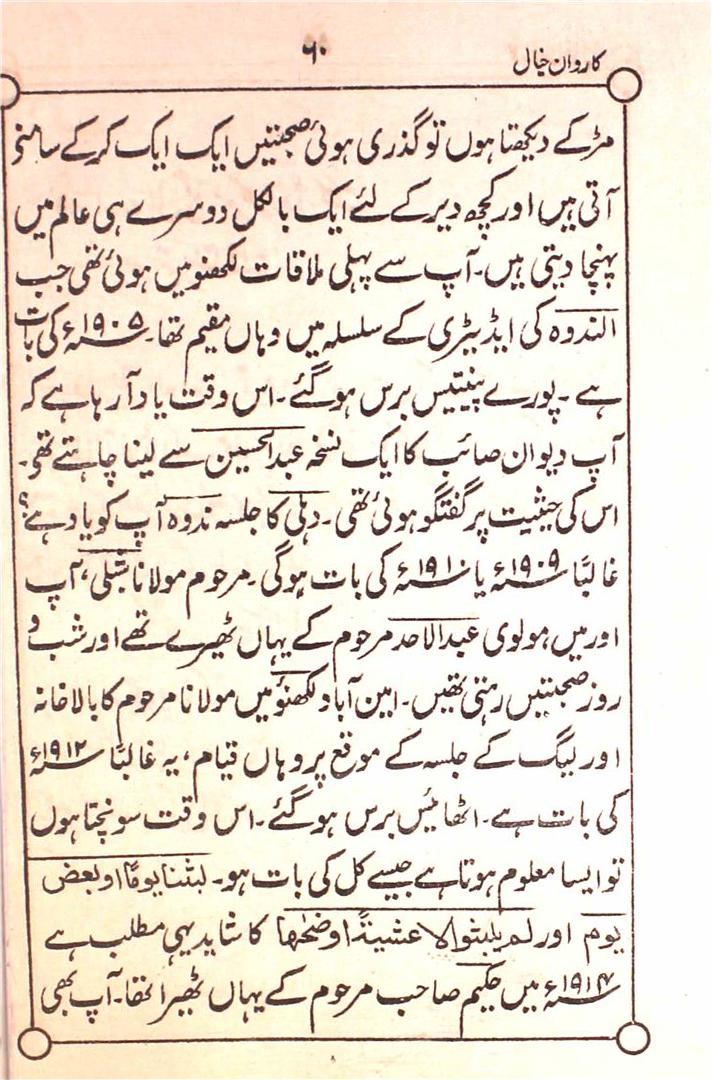 ۶۰
کاروان خیال
مڑکے دیکھتا ہوں تو گذری ہوئی صحبتیں ایک ایک کرکے سامنے
آتی ہیں اور کچھ دیر کے لئے ایک بالکل دوسرے ہی عالم میں
پہنچا دیتی ہیں۔ آپ سے پہلی ملاقات لکھنؤ میں ہوئی تھی جب
الندوہ کی ایڈیٹری کے سلسلہ میں وہاں مقیم تھا۔ ۱۹۰۵ء کی بات
ہے۔ پورے پینتیس برس ہوگئے۔ اس وقت یاد آرہا ہے کہ
آپ دیوان صائب کا ایک نسخہ عبدالحسین سے لینا چاہتے تھے۔
اس کی حیثیت پر گفتگو ہوئی تھی۔ دہلی کا جلسہ ندوہ آپ کو یاد ہے؟
غالبًا ۱۹۰۹ء یا ۱۹۱۰ء کی بات ہوگی۔ مرحوم مولانا شبلی، آپ
اور میں مولوی عبدالاحد مرحوم کے یہاں ٹھیرے تھے اور شب و
روز صحبتیں رہتی تھیں۔ امین آباد لکھنؤ میں مولانا مرحوم کا بالاخانہ
اور لیگ کے جلسہ کے موقع پر وہاں قیام، یہ غالبًا ۱۹۱۲ء
کی بات ہے۔ اٹھائیس برس ہوگئے۔ اس وقت سونچتا ہوں
تو ایسا معلوم ہوتا ہے جیسے کل کی بات ہو۔ لبثنا یومًا او بعض
یوم اور لم یلبثوا الا عشیۃً او ضحٰھا کا شاید یہی مطلب ہے
۱۹۱۴ء میں حکیم صاحب مرحوم کے یہاں ٹھیرا تھا۔ آپ بھی